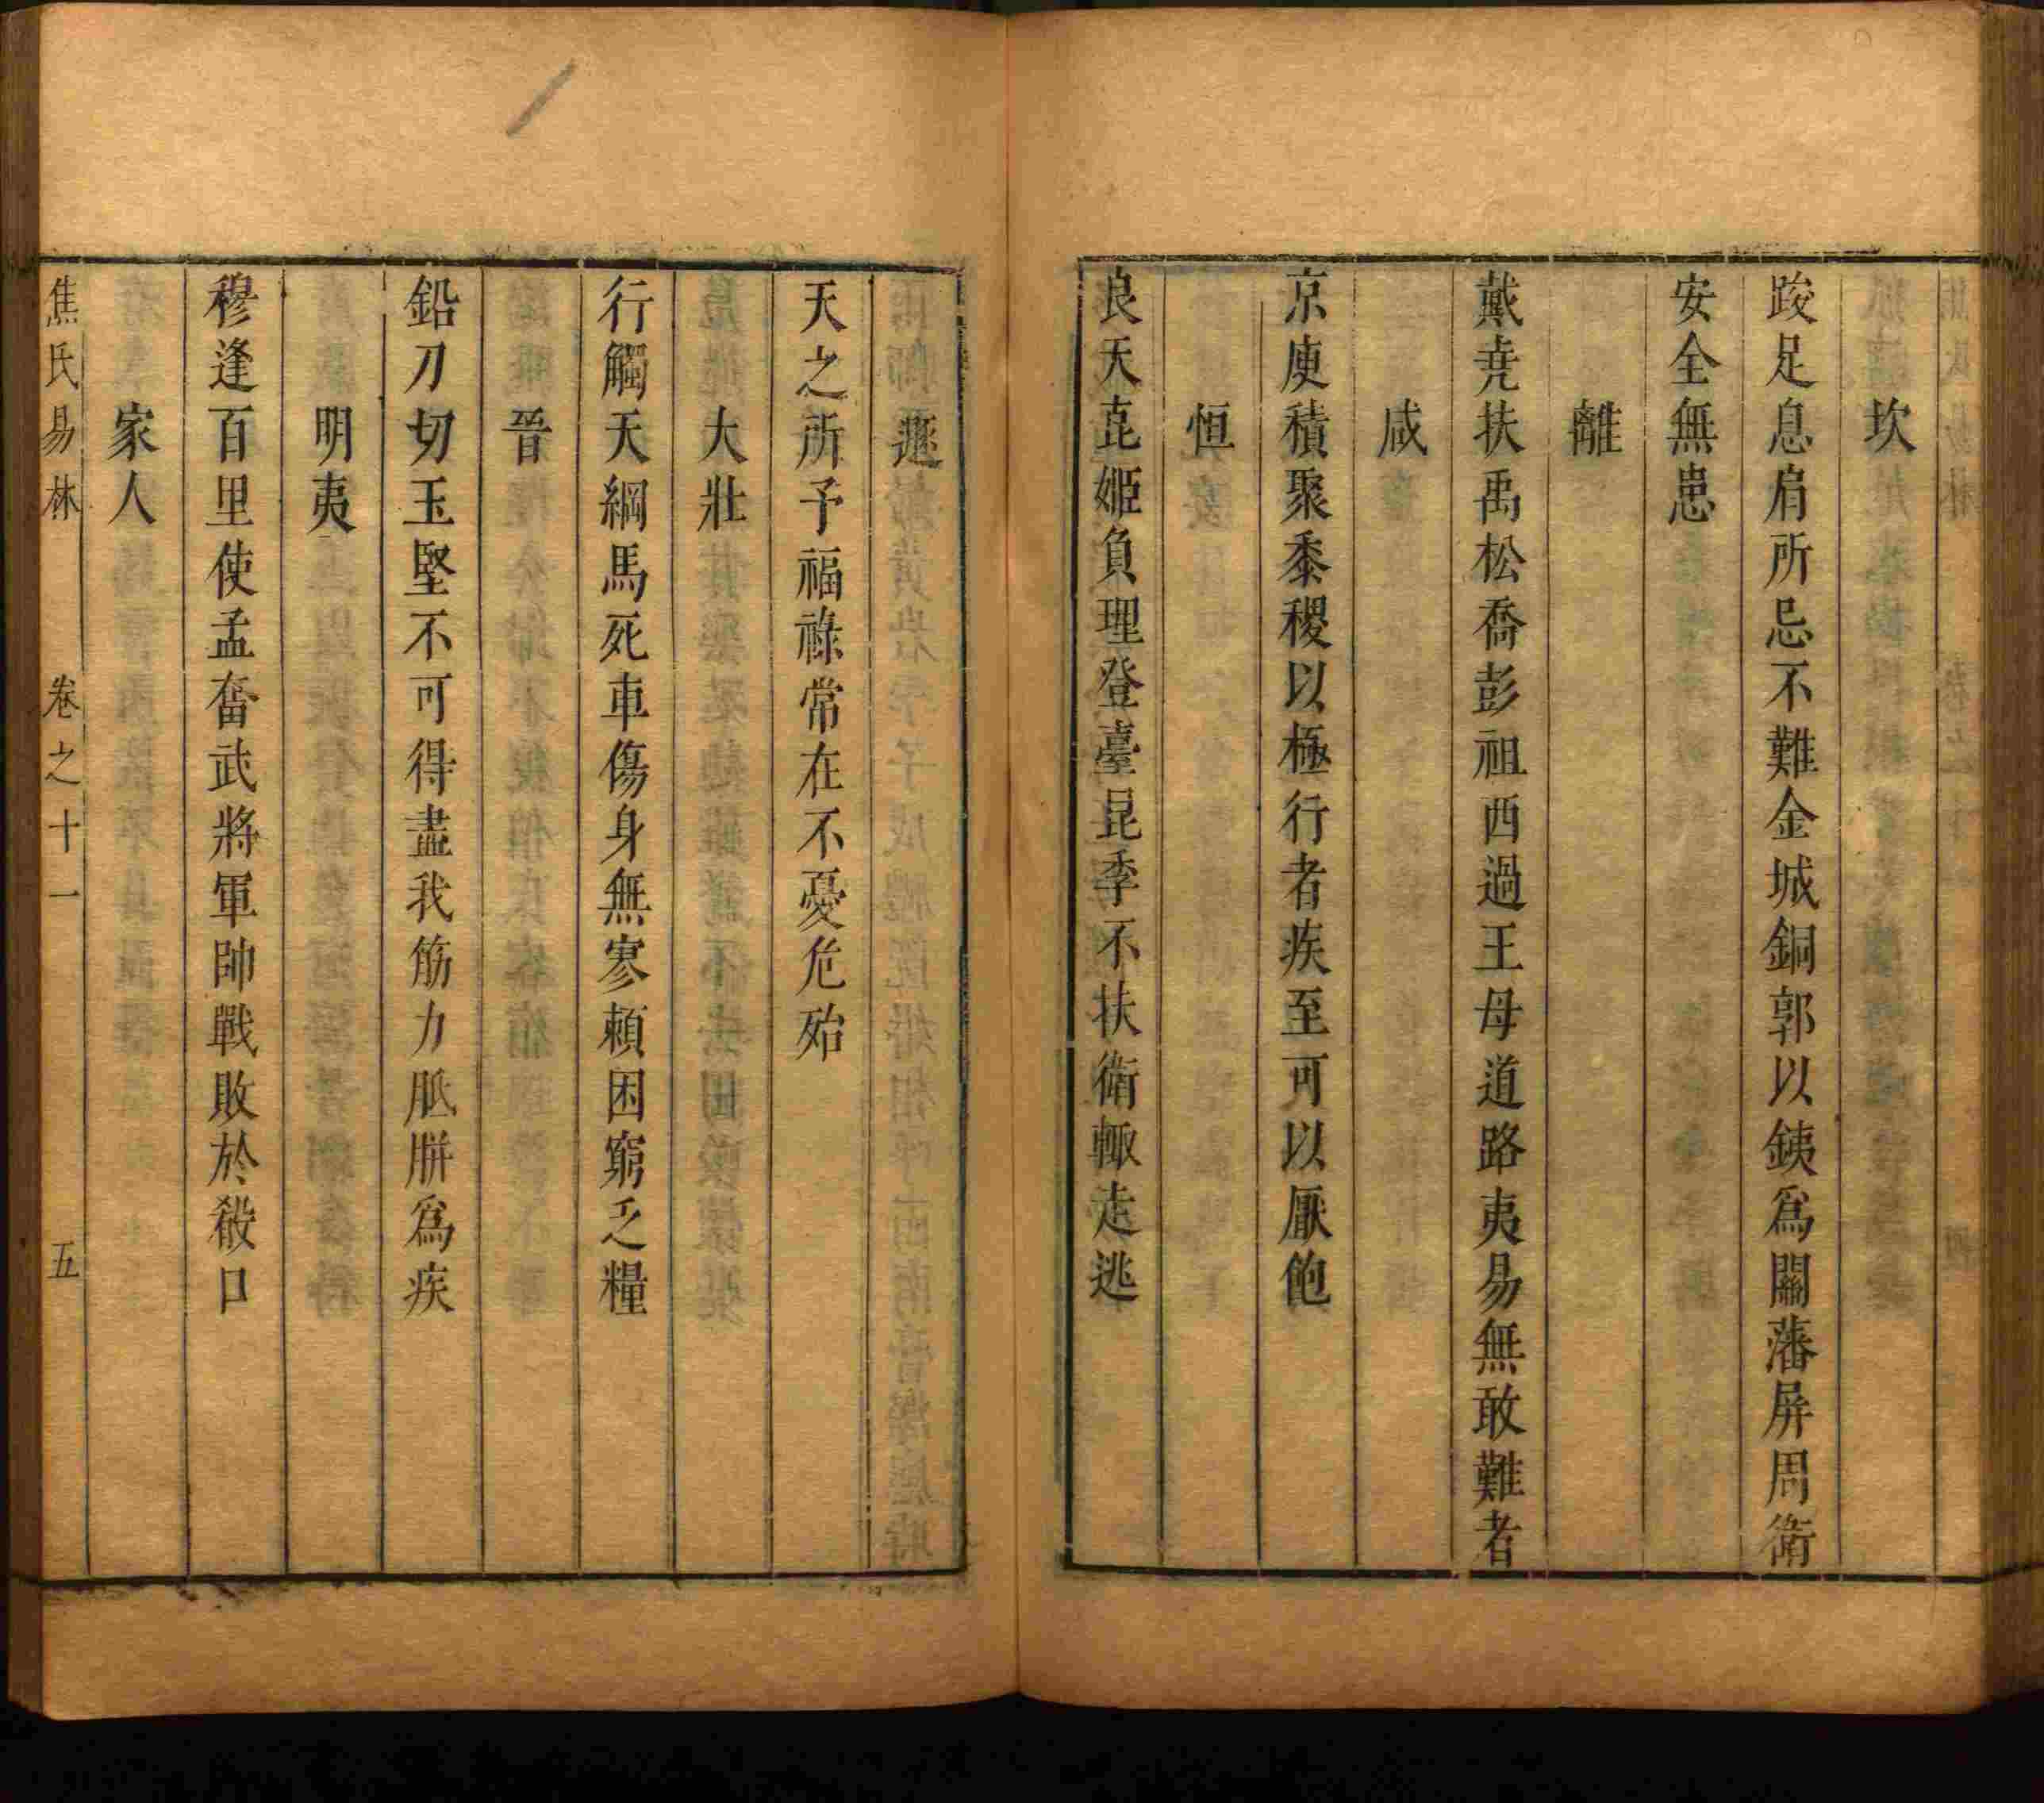 坎
跛足息肩所忌不難金城銅郭以鐵爲關藩屏周衛
安全無患
離
戴尭扶禹松喬彭祖西過王母道路夷易無敢難者
咸
京庾積聚黍稷以極行者疾至可以厭飽
恒
良夫孔姬負理登臺昆季不扶衛輙走逃
遯
天之所予福祿常在不憂危殆
大壯
行觸天綱馬死車傷身無寥賴困窮乏糧
晉
鉛刀切玉堅不可得盡我筋力胝胼爲疾
明夷
穆逢百里使孟奮武將軍帥戰敗於殽口
家人
焦氏易林 卷之十一 五